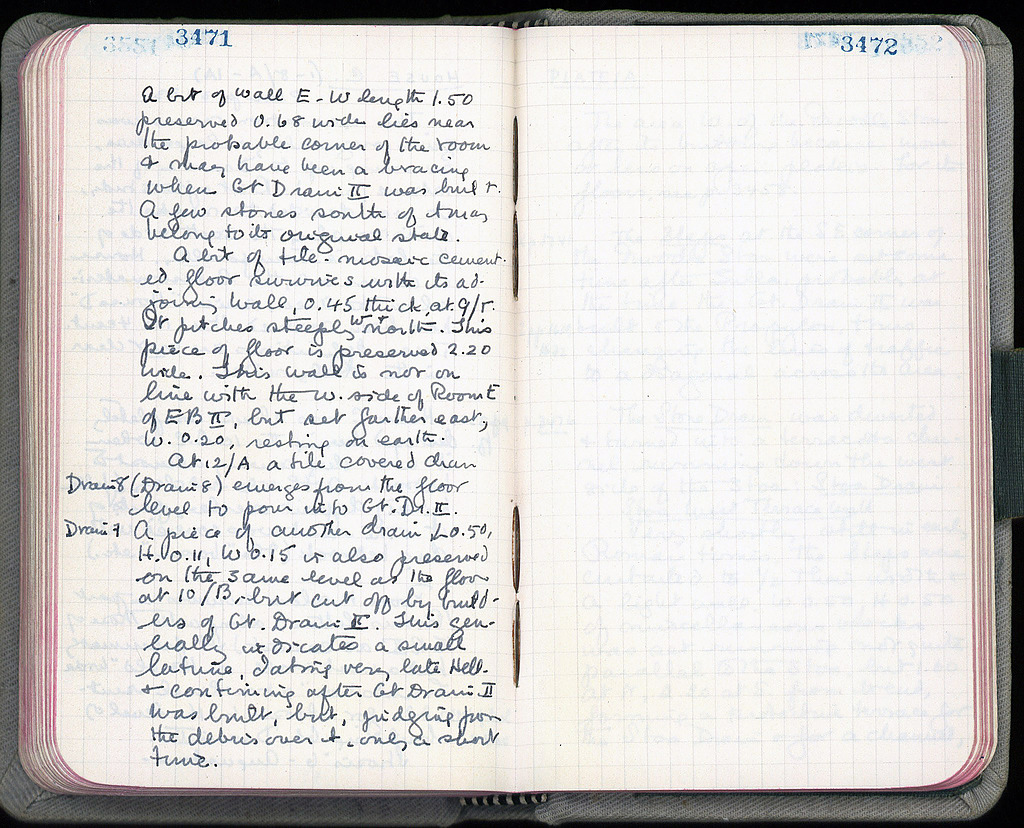 3471
A bit of wall E-W length 1.50
preserved 0.68 wide lies near
the probable corner of the room
& may have been a bracing
when Gt Drain II was built.
A few stones south of it may
belong to its original state.
A bit of tile-mosaic cement-
ed floor survives with its ad-
joining wall, 0.45 thick, at 9/Γ.
It pitches steeply to north. This
piece of floor is preserved 2.20
wide. This wall is not on
line with the W. side of Room E
of EB II, but set farther east,
W. 0.20, resting on earth.
At 12/A a tile covered drain
Drain 8 (Drain 8) emerges from the floor
level to pour into Gt. Dr. II.
Drain 7 A piece of another drain, L 0.50,
H. 0.11, W 0.15 is also preserved
on the same level as the floor
at 10/B, but cut off by build-
ers of Gt. Drain II. This gen-
erally indicates a small
latrine, dating very late Hell.
& continuing after Gt Drain II
was built, but, judging from
the debris over it, only a short
time.
3472